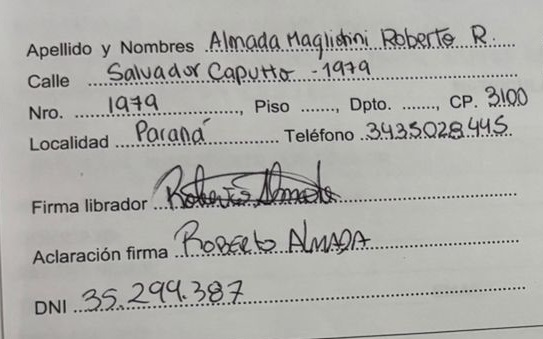 Apellido y Nombres Almada Magliotini Roberto R.
Calle Salvador Caputto - 1979
Nro. 1979, Piso ......, Dpto. ......, CP. 3100
Localidad Paraná Teléfono 3435028445.
Firma librador Roberto Almada
Aclaración firma ROBERTO ALMADA
DNI 35.299.387